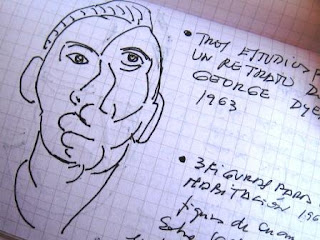 • TRES ESTUDIOS P
UN RETRATO D
GEORGE DYE
1963
• 3 FIGURAS PARA
HABITACIÓN 196
figura de
Sobre